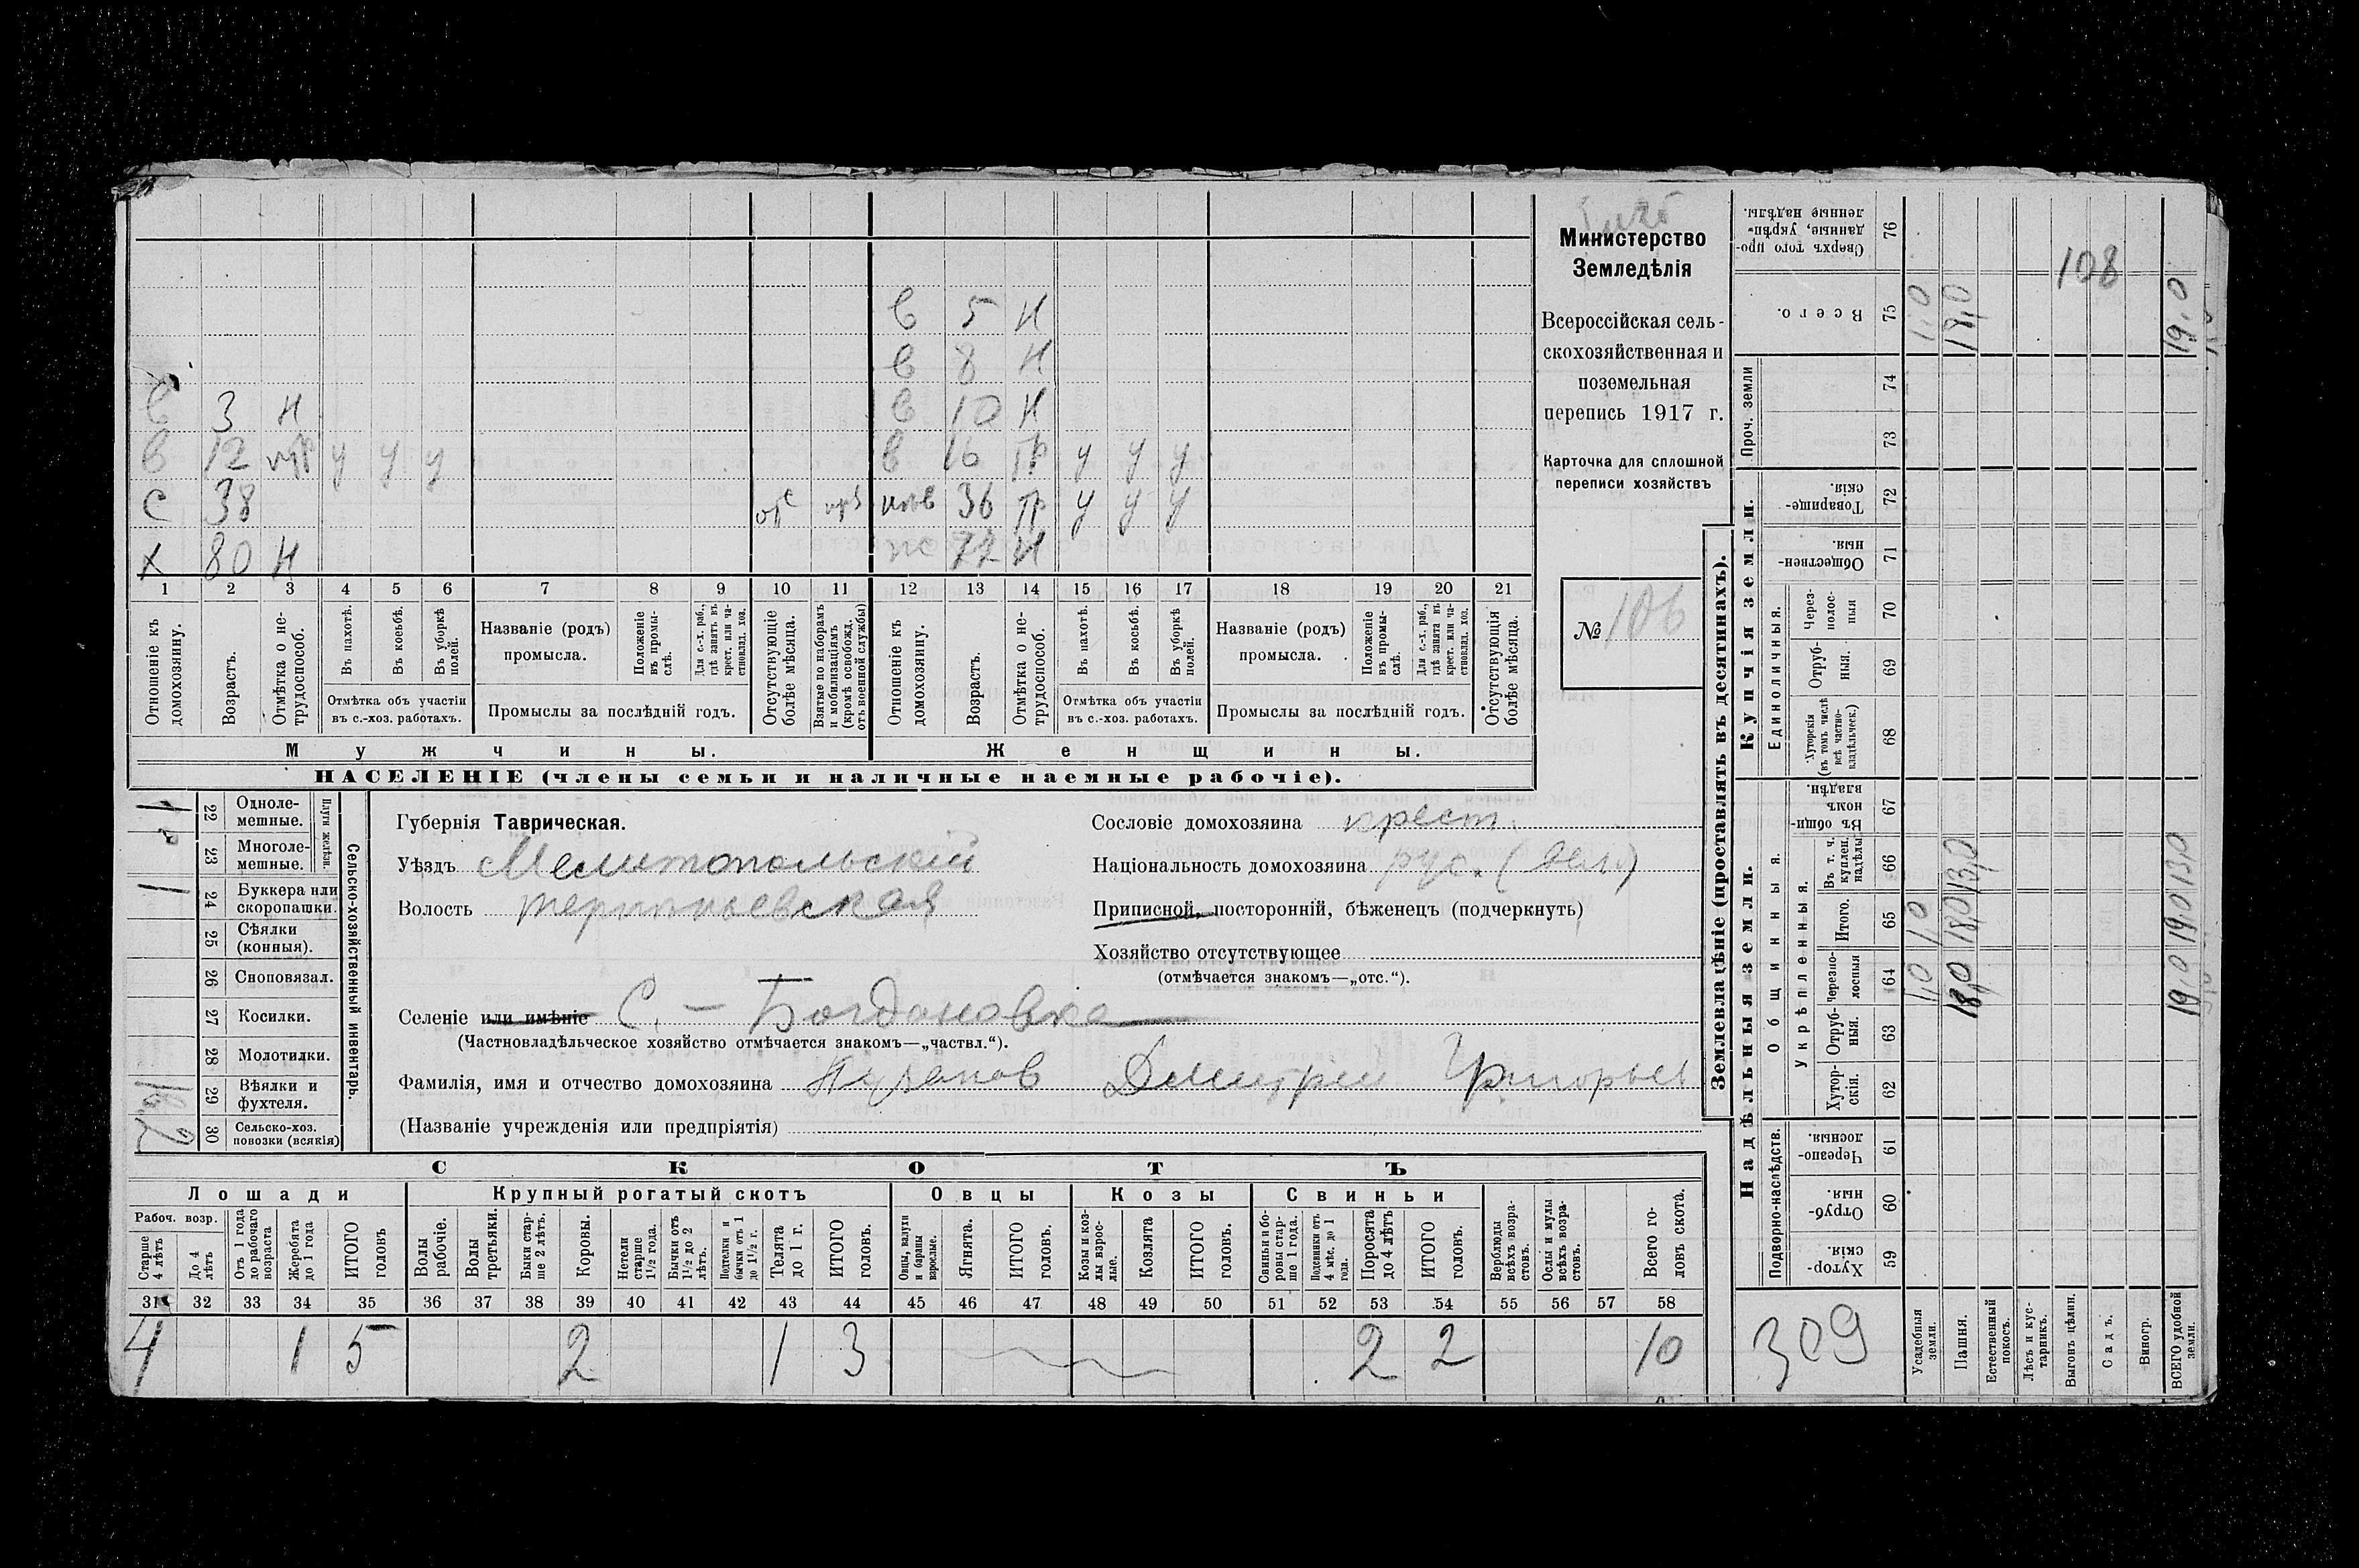 Министерство
Земледѣлія
Всероссійская сель-
скохозяйственная и
поземельная
перепись 1917 г.
Карточка для сплошной
переписи хозяйствъ
№ 106
в 5 н
в 8 н
в 3 н в 10 н
в 12 у у у в 16 у у у
с 38 36 у у у
х 80 н 72 н
1 2 3 4 5 6 7 8 9 10 11 12 13 14 15 16 17 18 19 20 21
Отношеніе къ домохозяину.
Возрастъ.
Отмѣтка о не-трудоспособ.
Въ пахотѣ.
Въ косьбѣ.
Въ уборкѣ полей.
Отмѣтка объ участіи
въ с.-хоз. работахъ.
Названіе (родъ)
промысла.
Положеніе въ промы-слѣ.
Для с.-х. раб., гдѣ занятъ въ крест. или ча-стновлад. хоз.
Промыслы за послѣдній годъ.
Отсутствующіе болѣе мѣсяца.
Взятые по наборамъ и мобилизаціямъ (кромѣ освобожд. отъ военной службы)
Отношеніе къ домохозяину.
Возрастъ.
Отмѣтка о не-трудоспособ.
Въ пахотѣ.
Въ косьбѣ.
Въ уборкѣ полей.
Отмѣтка объ участіи
въ с.-хоз. работахъ.
Названіе (родъ)
промысла.
Положеніе въ промы-слѣ.
Для с.-х. раб., гдѣ занята въ крест. или ча-стновлад. хоз.
Промыслы за послѣдній годъ.
Отсутствующія болѣе мѣсяца.
Мужчины. Женщины.
НАСЕЛЕНІЕ (члены семьи и наличные наемные рабочіе).
22 Одноле-мешные.
23 Многоле-мешные.
24 Буккера или скоропашки.
25 Сѣялки (конныя).
26 Сноповязал.
27 Косилки.
28 Молотилки.
29 Вѣялки и фухтеля.
30 Сельско-хоз. повозки (всякія)
Плуги желѣзн.
Сельско-хозяйственный инвентарь.
Губернія Таврическая.
Уѣздъ Мелитопольскій
Волость Терпеньевская
Сословіе домохозяина крест.
Національность домохозяина рус. (вел.)
Приписной, посторонній, бѣженецъ (подчеркнуть)
Хозяйство отсутствующее
(отмѣчается знакомъ—„отс.“).
Селеніе или имѣніе С. – Богдановка
(Частновладѣльческое хозяйство отмѣчается знакомъ—„частвл.“).
Фамилія, имя и отчество домохозяина Пузанов Дмитрий Григорьев
(Названіе учрежденія или предпріятія)
СКОТЪ
Лошади Крупный рогатый скотъ Овцы Козы Свиньи
Рабоч. возр.
Старше 4 лѣтъ
До 4 лѣтъ
Отъ 1 года до рабочаго возраста
Жеребята до 1 года
ИТОГО головъ
Волы рабочіе.
Волы третьяки.
Быки стар-ше 2 лѣтъ.
Коровы.
Нетели старше 1½ года.
Бычки отъ 1½ до 2 лѣтъ.
Подтелки и бычки отъ 1 до 1½ г.
Телята до 1 г.
ИТОГО головъ.
Овцы, валухи и бараны взрослые.
Ягнята.
ИТОГО головъ.
Козы и коз-лы взрос-лые.
Козлята
ИТОГО головъ.
Свиньи и бо-ровы стар-ше 1 года.
Подсвинки отъ 4 мѣс. до 1 года.
Поросята до 4 лѣтъ
ИТОГО головъ.
Верблюды всѣхъ возра-стовъ.
Ослы и мулы всѣхъ возра-стовъ.
Всего го-ловъ скота.
31 32 33 34 35 36 37 38 39 40 41 42 43 44 45 46 47 48 49 50 51 52 53 54 55 56 57 58
4 1 5 2 1 3 2 2 10
Землевладѣніе (проставлять въ десятинахъ).
Надѣльныя земли. Купчія земли.
Проч. земли
Сверхъ того про-данные, укрѣп-ленные надѣлы. 76
Всего. 75
74
73
Товарище-скія. 72
Обществен-ныя. 71
Единоличныя.
Через-полос-ныя 70
Отруб-ныя. 69
Хуторскія (въ томъ числѣ всѣ частно-владѣльческ.) 68
Общинныя.
Въ общин-номъ владѣн. 67
Укрѣпленныя.
Въ т. ч. куплен. надѣлы 66
Итого. 65
Черезпо-лосныя 64
Отруб-ныя. 63
Хутор-скія. 62
Подворно-наслѣдств.
Черезпо-лосныя. 61
Отруб-ныя. 60
Хутор-скія. 59
309
Усадебныя земли. 1,0 1,0 1,0
Пашня. 18,0 18,0 13,0 18,0
Естественный покосъ.
Лѣсъ и кус-тарникъ.
Выгонъ цѣлин.
Садъ.
Виногр.
ВСЕГО удобной земли. 19,0 19,0 13,0 19,0
108